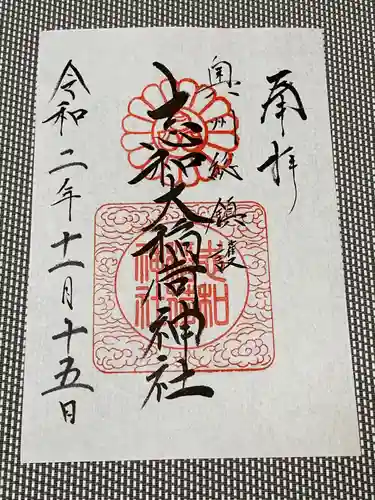 奉拝
奥州総鎮護
志和大稲荷神社
令和二年十一月十五日
志和
稲荷
神社